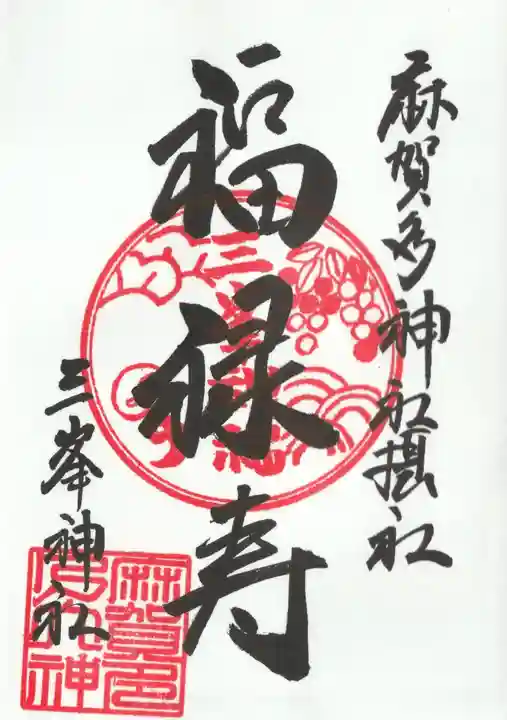 麻賀多神社摂社
福禄寿
三峯神社
麻賀多